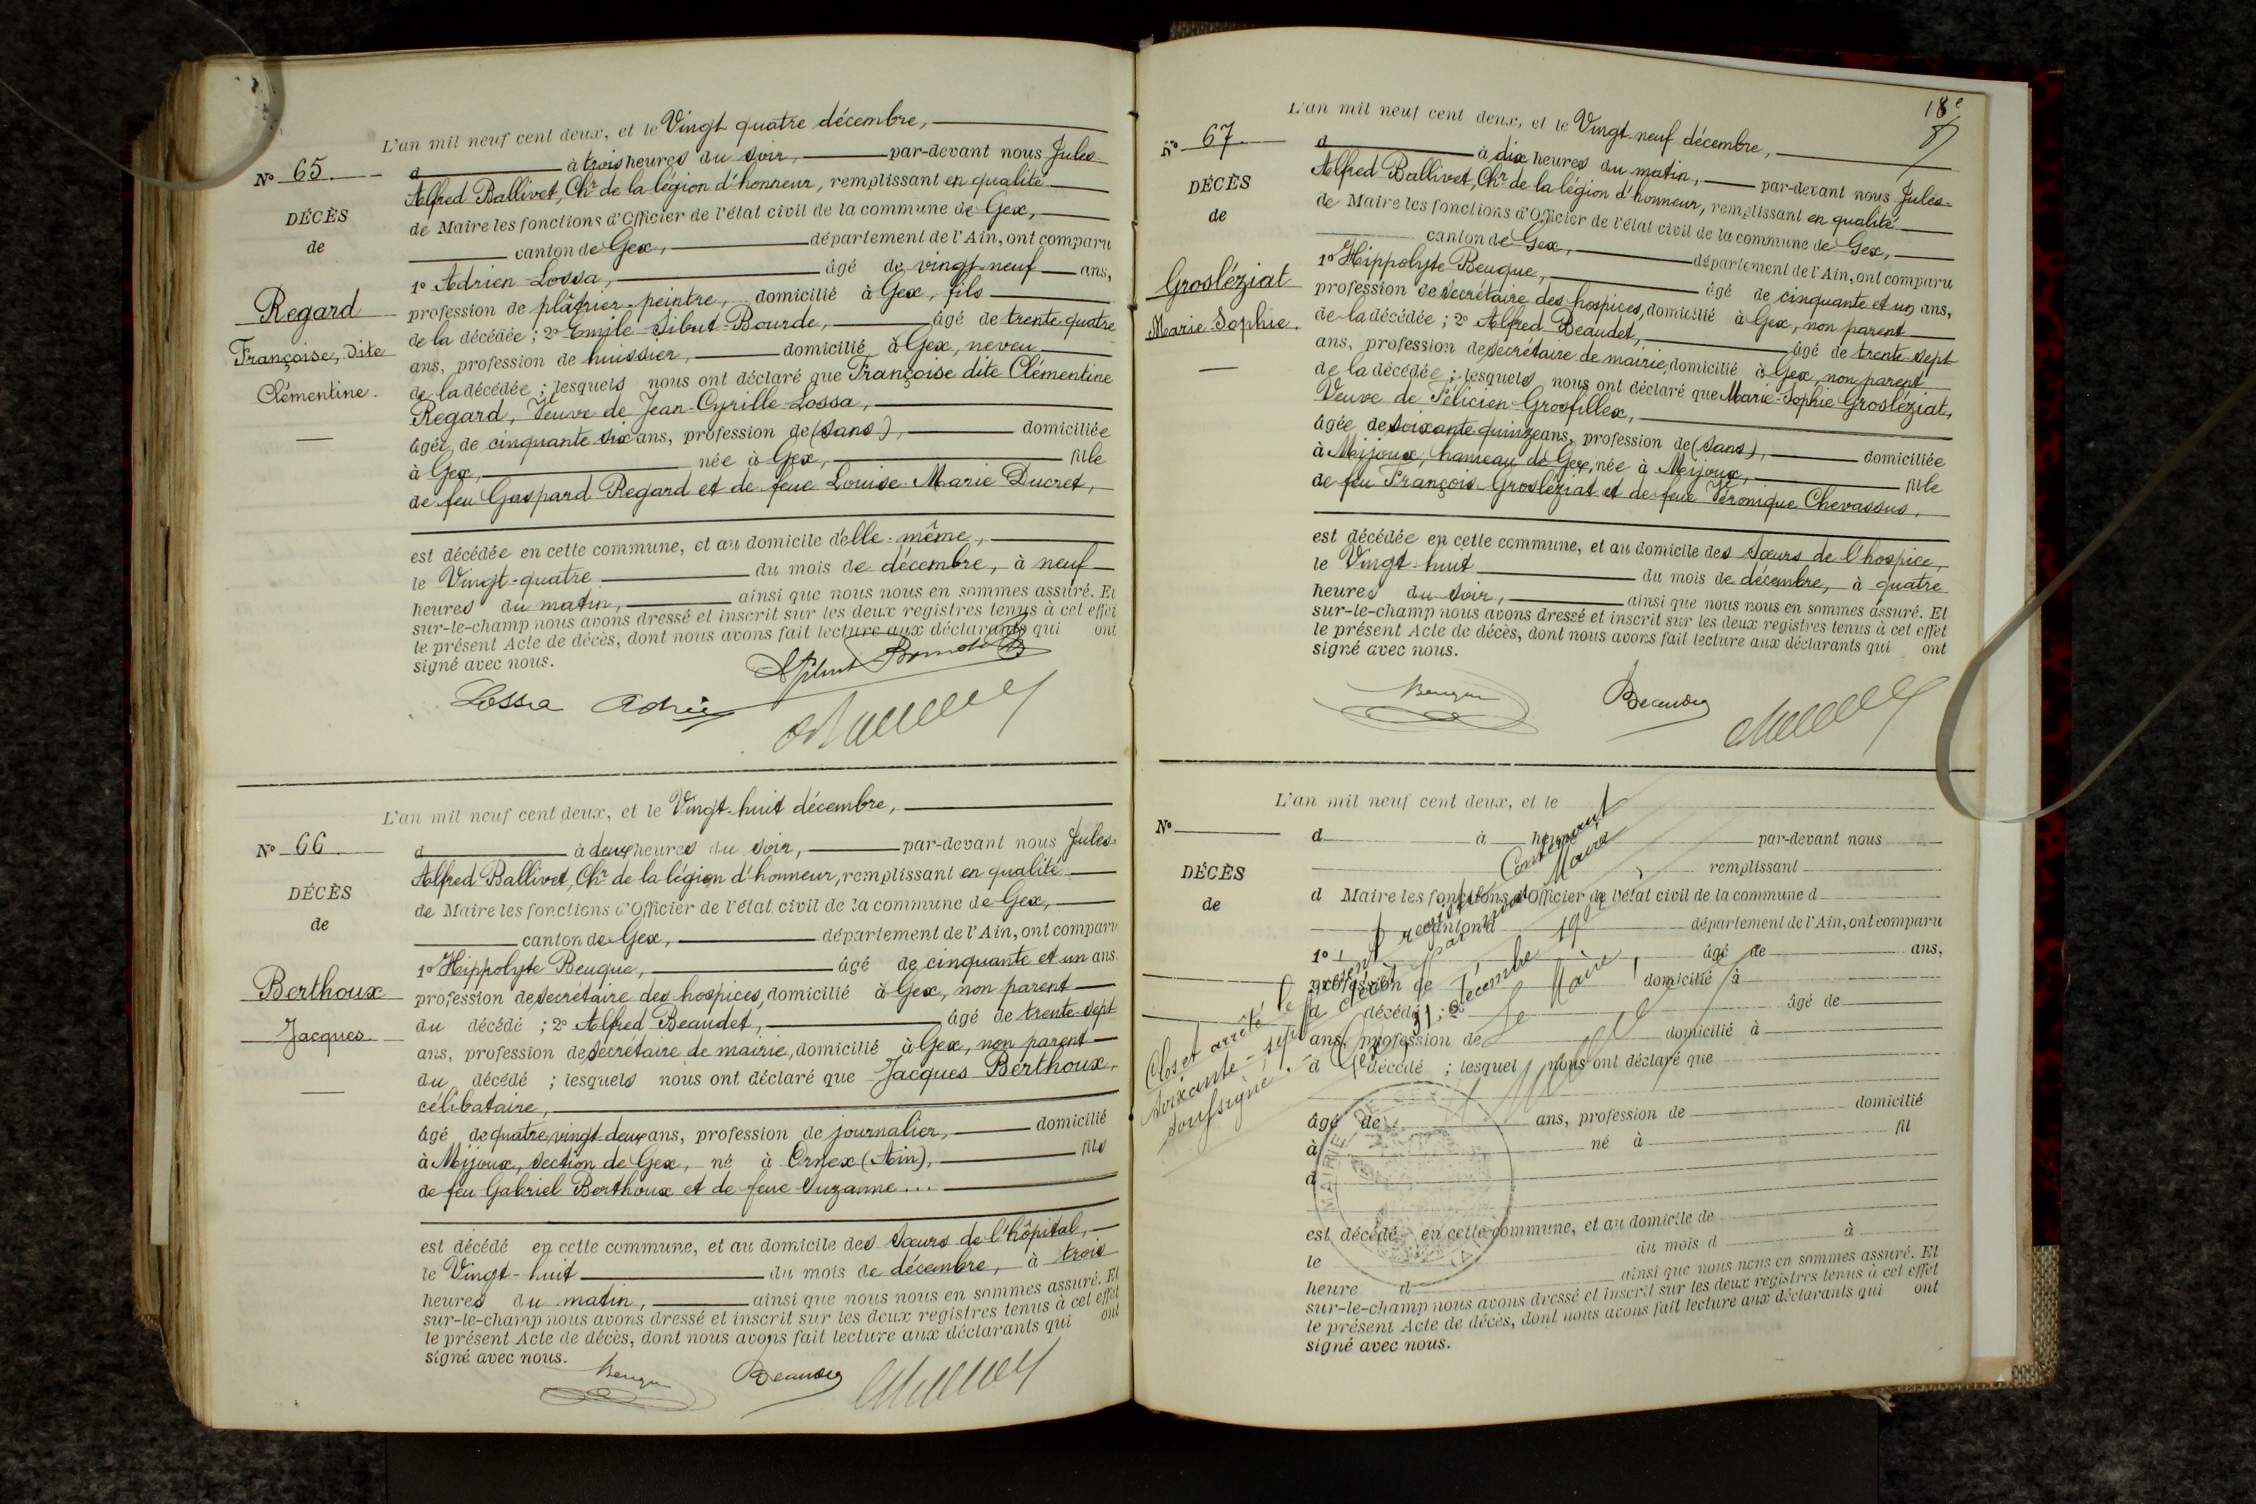 L'an mil neuf cent deux, et le Vingt quatre décembre,
N° 65.
d à trois heures du soir, par-devant nous Jules-
Alfred Ballivet, Chr de la légion d'honneur, remplissant en qualité
DÉCÈS
de Maire les fonctions d'Officier de l'état civil de la commune de Gex,
de
canton de Gex, département de l'Ain, ont comparu
1° Adrien Lossa, âgé de vingt neuf ans,
Regard
profession de plâtrier-peintre, domicilié à Gex, fils
de la décédée ; 2° Emile Sibut-Bourde, âgé de trente quatre
Françoise, dite
ans, profession de huissier, domicilié à Gex, neveu
Clémentine.
de la décédée ; lesquels nous ont déclaré que Françoise dite Clémentine
Regard, Veuve de Jean-Cyrille Lossa,
âgée de cinquante six ans, profession de (sans), domiciliée
à Gex, née à Gex, fille
de feu Gaspard Regard et de feue Louise-Marie Ducret,
est décédée en cette commune, et au domicile d'elle-même,
le Vingt-quatre du mois de décembre, à neuf
heures du matin, ainsi que nous nous en sommes assuré. Et
sur-le-champ nous avons dressé et inscrit sur les deux registres tenus à cet effet
le présent Acte de décès, dont nous avons fait lecture aux déclarants qui ont
signé avec nous.
Lossa Adrien
L'an mil neuf cent deux, et le Vingt-huit décembre,
N° 66.
d à deux heures du soir, par-devant nous Jules-
Alfred Ballivet, Chr de la légion d'honneur, remplissant en qualité
DÉCÈS
de Maire les fonctions d'Officier de l'état civil de la commune de Gex,
de
canton de Gex, département de l'Ain, ont comparu
1° Hippolyte Beuque, âgé de cinquante et un ans.
Berthoux
profession de secrétaire des hospices, domicilié à Gex, non parent
du décédé ; 2° Alfred Beaudet, âgé de trente-sept
Jacques
ans, profession de secrétaire de mairie, domicilié à Gex, non parent
du décédé ; lesquels nous ont déclaré que Jacques Berthoux,
célibataire,
âgé de quatre vingt deux ans, profession de journalier, domicilié
à Mijoux, section de Gex, né à Ornex (Ain), fils
de feu Gabriel Berthoux et de feue Suzanne ...
est décédé en cette commune, et au domicile des Sœurs de l'hôpital,
le Vingt-huit du mois de décembre, à trois
heures du matin, ainsi que nous nous en sommes assuré. Et
sur-le-champ nous avons dressé et inscrit sur les deux registres tenus à cet effet
le présent Acte de décès, dont nous avons fait lecture aux déclarants qui ont
signé avec nous.
Beuque Beaudet
18e
L'an mil neuf cent deux, et le Vingt-neuf décembre,
N° 67.
d à dix heures du matin, par-devant nous Jules-
Alfred Ballivet, Chr de la légion d'honneur, remplissant en qualité
DÉCÈS
de Maire les fonctions d'Officier de l'état civil de la commune de Gex,
de
canton de Gex, département de l'Ain, ont comparu
1° Hippolyte Beuque, âgé de cinquante et un ans,
Grosléziat
profession de secrétaire des hospices, domicilié à Gex, non parent
de la décédée ; 2° Alfred Beaudet, âgé de trente-sept
Marie Sophie.
ans, profession de secrétaire de mairie, domicilié à Gex, non parent
de la décédée ; lesquels nous ont déclaré que Marie-Sophie Grosléziat,
Veuve de Félicien Grosfillex,
âgée de soixante-quinze ans, profession de (sans), domiciliée
à Mijoux, hameau de Gex, née à Mijoux, fille
de feu François Grosléziat et de feue Véronique Chevassus,
est décédée en cette commune, et au domicile des Sœurs de l'hospice,
le Vingt-huit du mois de décembre, à quatre
heures du soir, ainsi que nous nous en sommes assuré. Et
sur-le-champ nous avons dressé et inscrit sur les deux registres tenus à cet effet
le présent Acte de décès, dont nous avons fait lecture aux déclarants qui ont
signé avec nous.
Beuque Beaudet
L'an mil neuf cent deux, et le
N°
d à heure par-devant nous
DÉCÈS
remplissant
de
d Maire les fonctions d'Officier de l'état civil de la commune d
canton d département de l'Ain, ont comparu
1° âgé de ans,
profession de domicilié à
d décédé ; 2° âgé de
ans, profession de domicilié à
d décédé ; lesquel nous ont déclaré que
âgé de ans, profession de domicilié
à né à fil
d
est décédé en cette commune, et au domicile de
le du mois d à
heure d ainsi que nous nous en sommes assuré. Et
sur-le-champ nous avons dressé et inscrit sur les deux registres tenus à cet effet
le présent Acte de décès, dont nous avons fait lecture aux déclarants qui ont
signé avec nous.
Clos et arrêté le présent registre Contenant
Soixante-sept décès par nous Maire
soussigné.
à Gex 31 Décembre 1902
Le Maire,
MAIRIE DE GEX
(AIN)